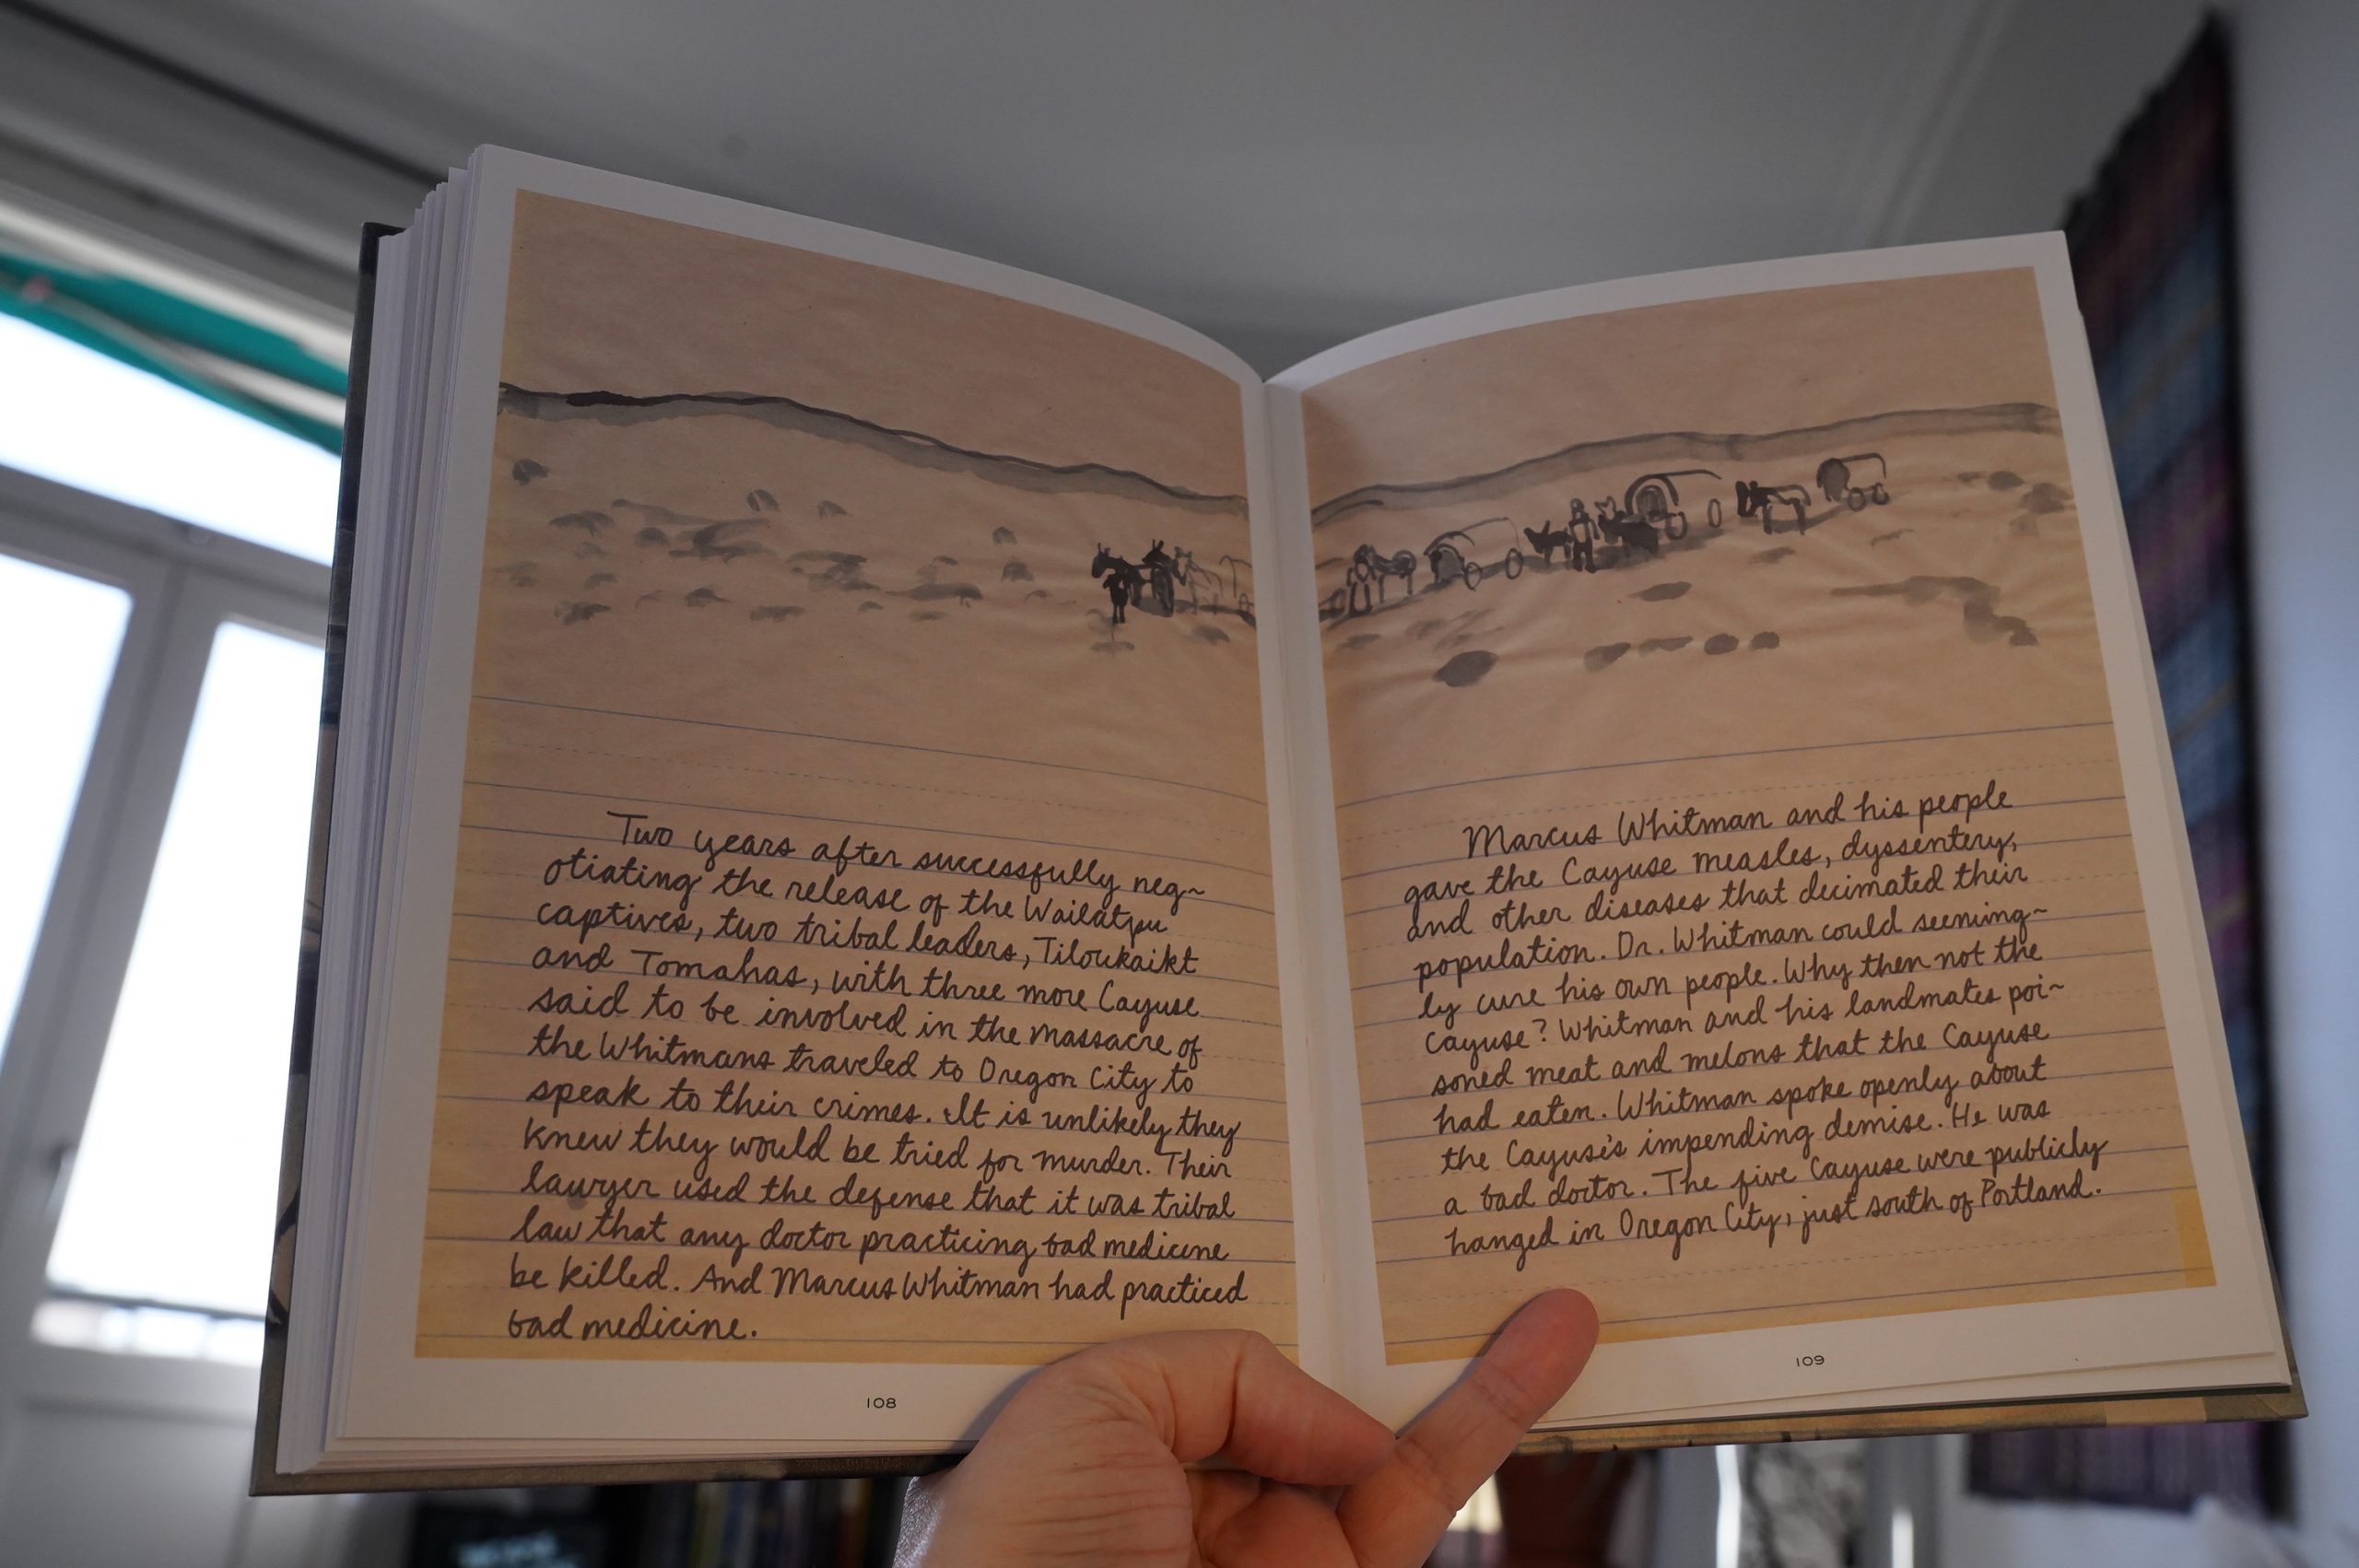 Two years after successfully neg~
otiating the release of the Wailatpu
captives, two tribal leaders, Tiloukaikt
and Tomahas, with three more Cayuse
said to be involved in the massacre of
the Whitmans traveled to Oregon City to
speak to their crimes. It is unlikely they
knew they would be tried for murder. Their
lawyer used the defense that it was tribal
law that any doctor practicing bad medicine
be killed. And Marcus Whitman had practiced
bad medicine.
108
Marcus Whitman and his people
gave the Cayuse measles, dyssentery,
and other diseases that decimated their
population. Dr. Whitman could seeming~
ly cure his own people. Why then not the
Cayuse? Whitman and his landmates poi~
soned meat and melons that the Cayuse
had eaten. Whitman spoke openly about
the Cayuse's impending demise. He was
a bad doctor. The five Cayuse were publicly
hanged in Oregon City, just south of Portland.
109